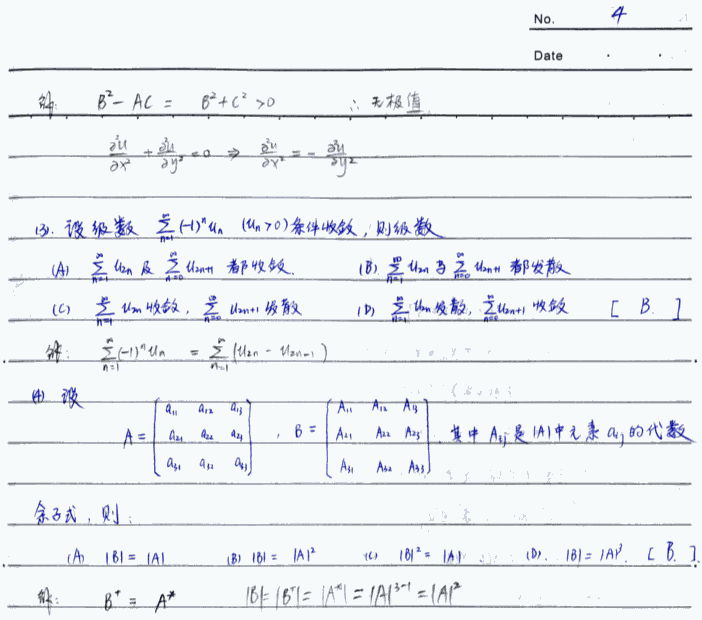 No. 4
Date . .
解: B² - AC = B² + C² > 0 ∴ 无极值
∂²u/∂x² + ∂²u/∂y² = 0 ⇒ ∂²u/∂x² = - ∂²u/∂y²
(3). 设级数 ∑_{n=1}^{∞} (-1)ⁿ uₙ (uₙ>0) 条件收敛, 则级数
(A) ∑_{n=1}^{∞} u_{2n} 及 ∑_{n=0}^{∞} u_{2n+1} 都收敛. (B) ∑_{n=1}^{∞} u_{2n} 与 ∑_{n=0}^{∞} u_{2n+1} 都发散
(C) ∑_{n=1}^{∞} u_{2n} 收敛, ∑_{n=0}^{∞} u_{2n+1} 发散 (D) ∑_{n=1}^{∞} u_{2n} 发散, ∑_{n=0}^{∞} u_{2n+1} 收敛 [ B. ]
解: ∑_{n=1}^{∞} (-1)ⁿ uₙ = ∑_{n=1}^{∞} (u_{2n} - u_{2n-1})
(4) 设
a₁₁ a₁₂ a₁₃ A₁₁ A₁₂ A₁₃
A = a₂₁ a₂₂ a₂₃ , B = A₂₁ A₂₂ A₂₃ . 其中 A_{ij} 是 |A| 中元素 a_{ij} 的代数
a₃₁ a₃₂ a₃₃ A₃₁ A₃₂ A₃₃
余子式, 则:
(A) |B| = |A| (B) |B| = |A|² (C) |B|² = |A| (D). |B| = |A|³. [ B. ].
解: Bᵀ = A* |B| = |Bᵀ| = |A*| = |A|³⁻¹ = |A|²